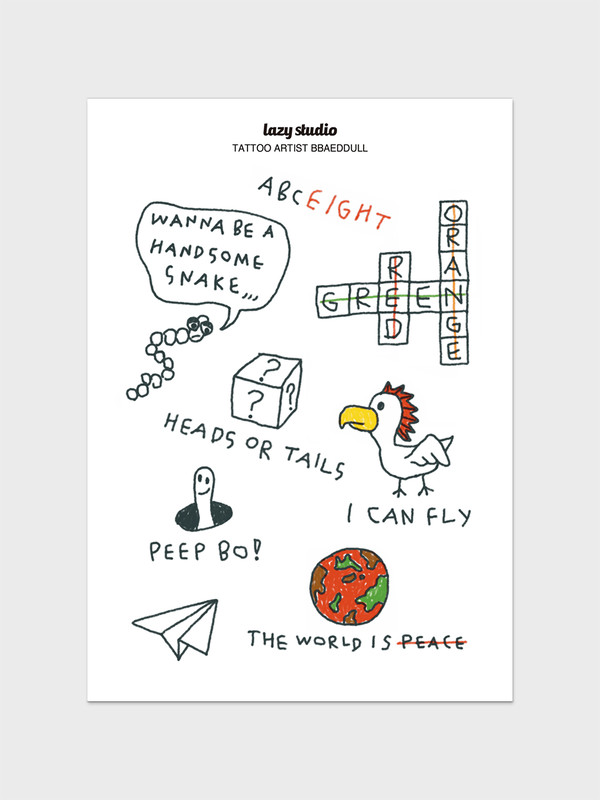 lazy studio
TATTOO ARTIST BBAEDDULL
ABCEIGHT
WANNA BE A
HANDSOME
SNAKE,,,
ORANGE
RED
GREEN
?
?
?
HEADS OR TAILS
I CAN FLY
PEEP BO!
THE WORLD IS PEACE